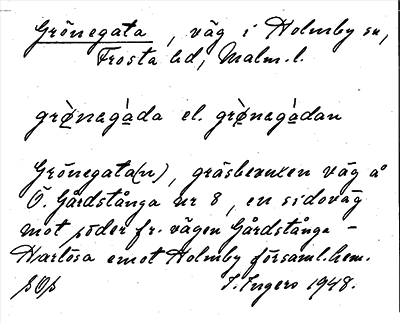 Grönegata, väg i Holmby sn,
Frosta hd, Malm. l.
grö̀negàda el. grö̀negàdan
Grönegata(n), gräsbevuxen väg å
Ö. Gårdstånga nr 8, en sidoväg
mot söder fr. vägen Gårdstånga -
Harlösa emot Holmby församl.hem.
I. Ingers 1948.